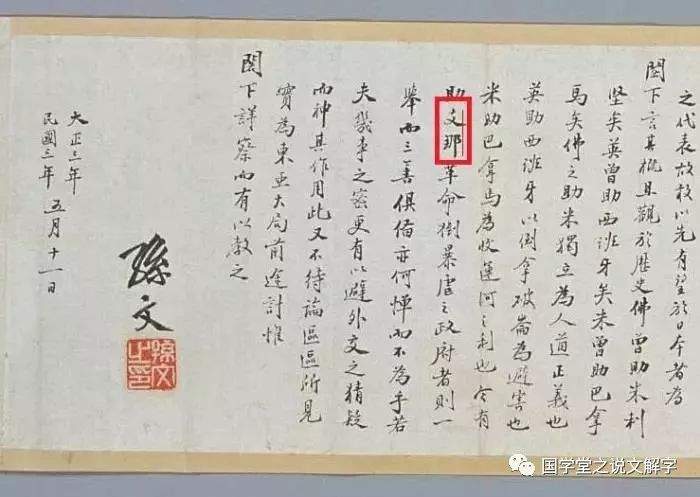 之代表故敢以先有望於日本者為
閣下言其概且觀於歷史佛曾助米利
堅矣英曾助西班牙矣米曾助巴拿
馬矣佛之助米獨立為人道正義也
英助西班牙以倒拿破崙為避害也
米助巴拿馬為收運河之利也今有
助支那革命倒暴虐之政府者則一
舉而三善俱備亦何憚而不為乎若
夫幾事之密更有以避外交之猜疑
而神其作用此又不待論區區所見
實為東亞大局前途計惟
閣下詳察而有以教之
大正三年
民國三年 五月十一日
孫文
孫文之印
国学堂之说文解字